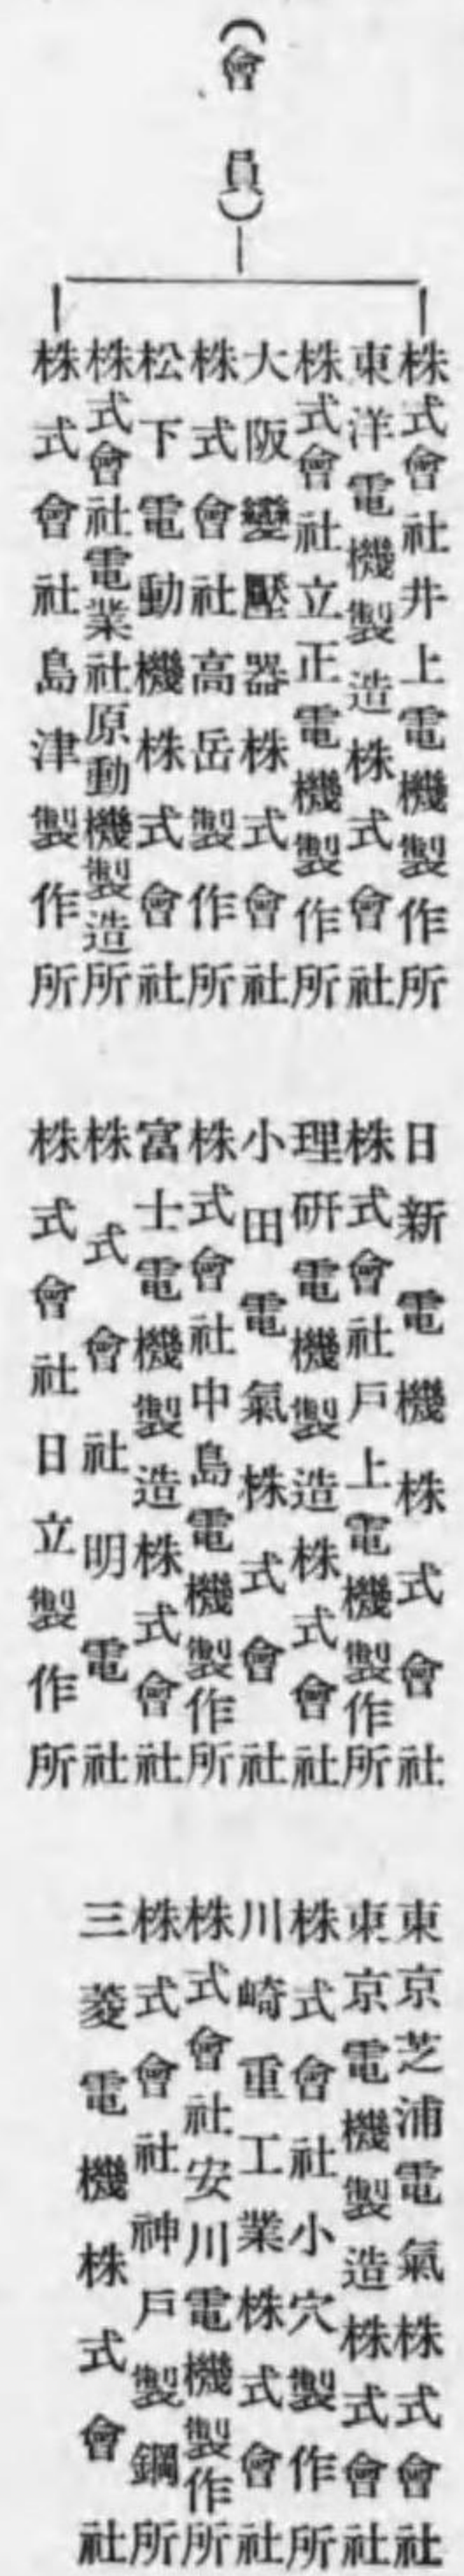 (會員)
株式會社井上電機製作所
東洋電機製造株式會社
株式會社立正電機製作所
大阪變壓器株式會社
株式會社高岳製作所
松下電動機株式會社
株式會社電業社原動機製造所
株式會社島津製作所
日新電機株式會社
株式會社戶上電機製作所
理硏電機製造株式會社
小田電氣株式會社
株式會社中島電機製作所
富士電機製造株式會社
株式會社明電社
株式會社日立製作所
東京芝浦電氣株式會社
東京電機製造株式會社
株式會社小穴製作所
川崎重工業株式會社
株式會社安川電機製作所
株式會社神戶製鋼所
三菱電機株式會社